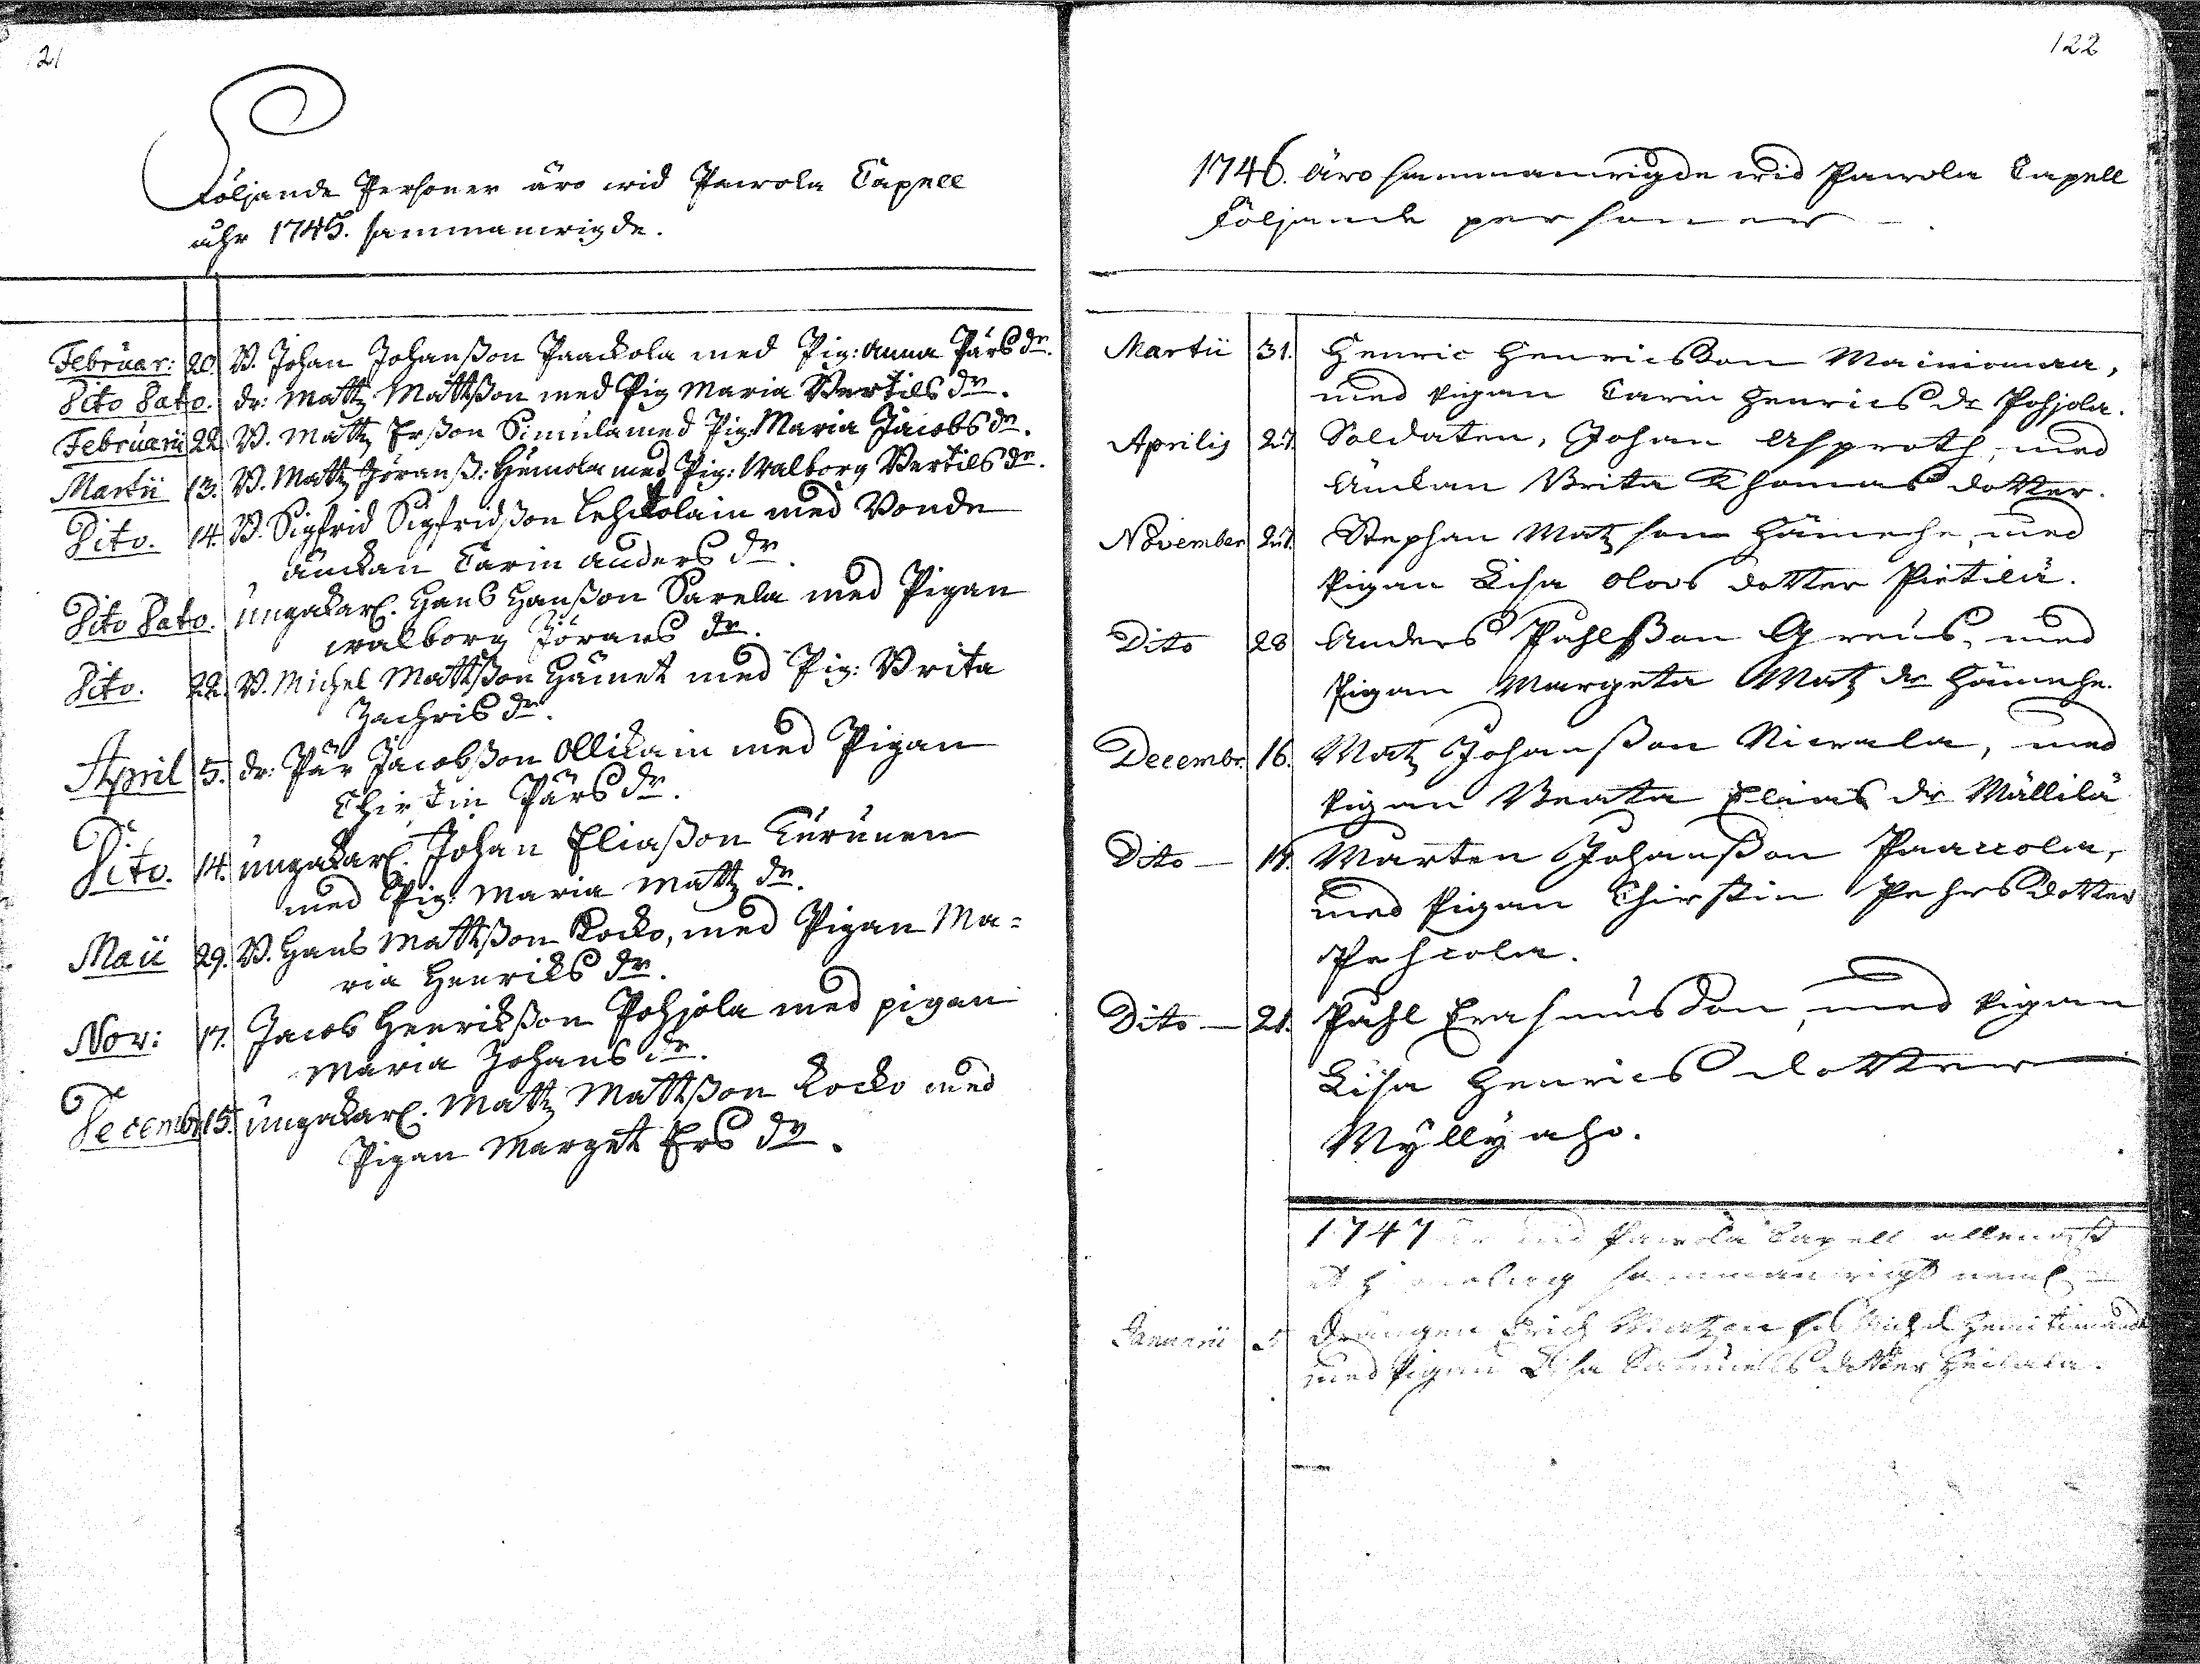 121
Följande Personer äro wid Pawola Capell
åhr 1745. sammanwigde.
Februar: 20. B. Johan Johanßon Paackola med Pig: Anna Pärs dr.
Dito Dato. dr: Matts Mattßon med Pig Maria Bertils dr.
Februarii 22. B. Matts Erßon Simula med Pig: Maria Jacobs dr.
Martii 13. B. Matts Jöranß: Hemola med Pig: Walborg Bertils dr.
Dito. 14. B. Sigfrid Sigfridßon Lehikolain med Bonde
änckan Carin Anders dr.
Dito Dato. ungakarl. Hans Hanßon Sarela med Pigan
walborg Jörans dr.
Dito. 22. B. Michel Mattßon Hämet med Pig: Brita
Zachris dr.
April 5. dr: Pär Jacobßon Ollikain med Pigan
Chirstin Pärs dr.
Dito. 14. ungakarl. Johan Eliaßon Kurunen
med Pig: Maria Matts dr.
Maii 29. B. Hans Mattßon Kocko, med Pigan Ma=
ria Henriks dr.
Nov: 17. Jacob Henrikßon Pohjola med pigan
Maria Johans dr.
Decembr 15. ungakarl. Matts Mattßon Kocko med
Pigan Margeta Ers dr.
122
1746. äro sammanwigde wid Pawola Capell
Följande personer
Martii 31. Henric Henricsson Mainiomaa,
med pigan Carin Henrics dr Pohjola.
Aprilis 27. Soldaten, Johan Asproth, med
Änckan Brita Thomas dotter.
November 27. Stephan Matsson Hämehe, med
Pigan Lisa Olovs dotter Pietilä.
Dito 28 Anders Påhlßon Greus, med
Pigan Margeta Mats dr Hämehe.
Decembr. 16. Mats Johanßon Niewala, med
pigan Beata Elias dr Mällilä
Dito 17. Marten Johanßon Paaccola,
med Pigan Chirstin Pehrs dotter
Pehcola.
Dito 21. Påhl Erasmusson, med pigan
Lisa Henrics dotter
Myllyaho.
1747 är wid Pawola Capell allenast
sammanwigt neml
Januarii 5 Drängen Erich Matzon Michel
med Pigan Lisa Samuels dotter Heilala.